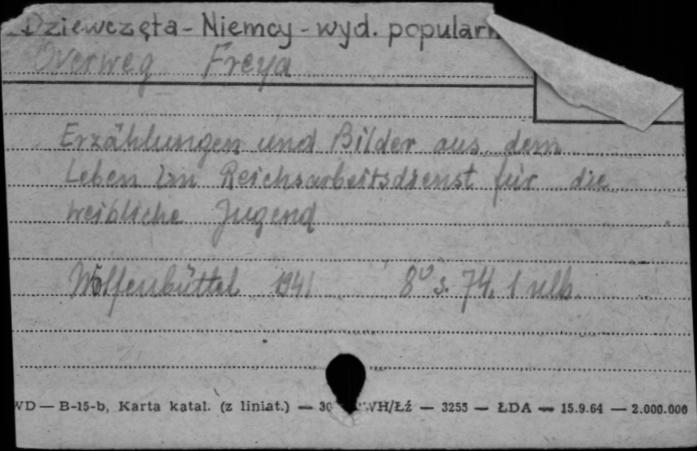 Dziewczęta - Niemcy - wyd. popularn
Overweg Freya
Erzählungen und Bilder aus dem
Leben im Reichsarbeitsdienst für die
weibliche Jugend
Wolfenbüttel 1941 8° s. 74, 1 nlb.
WD — B-15-b, Karta katal. (z liniat.) — 30 WH/Łź — 3255 — ŁDA — 15.9.64 — 2.000.000